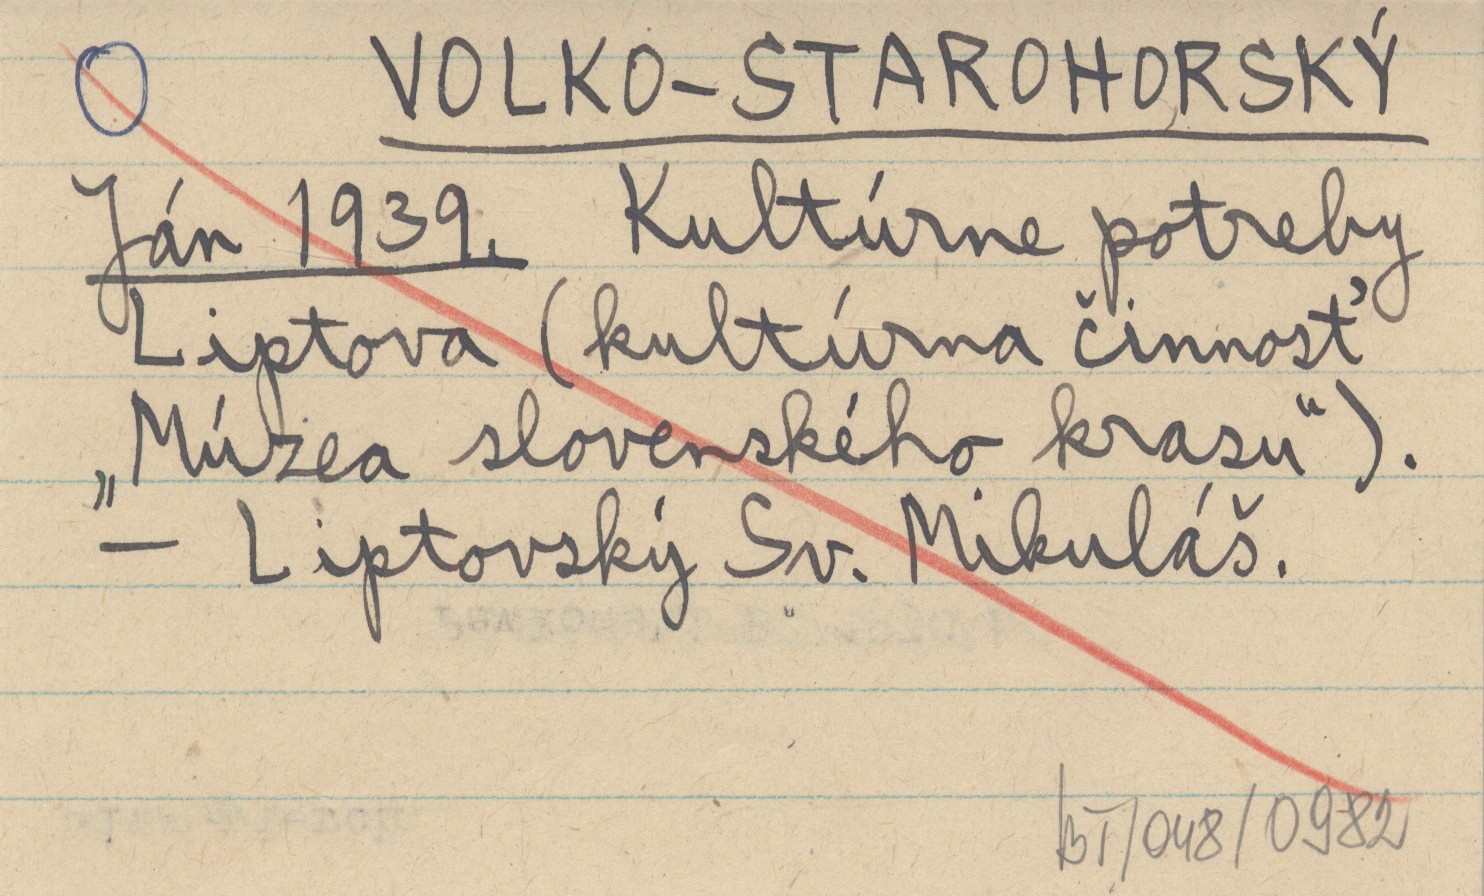 VOLKO-STAROHORSKÝ
Ján 1939. Kultúrne potreby
Liptova (kultúrna činnosť
„Múzea slovenského krasu“).
— Liptovský Sv. Mikuláš.
BT/048/0982